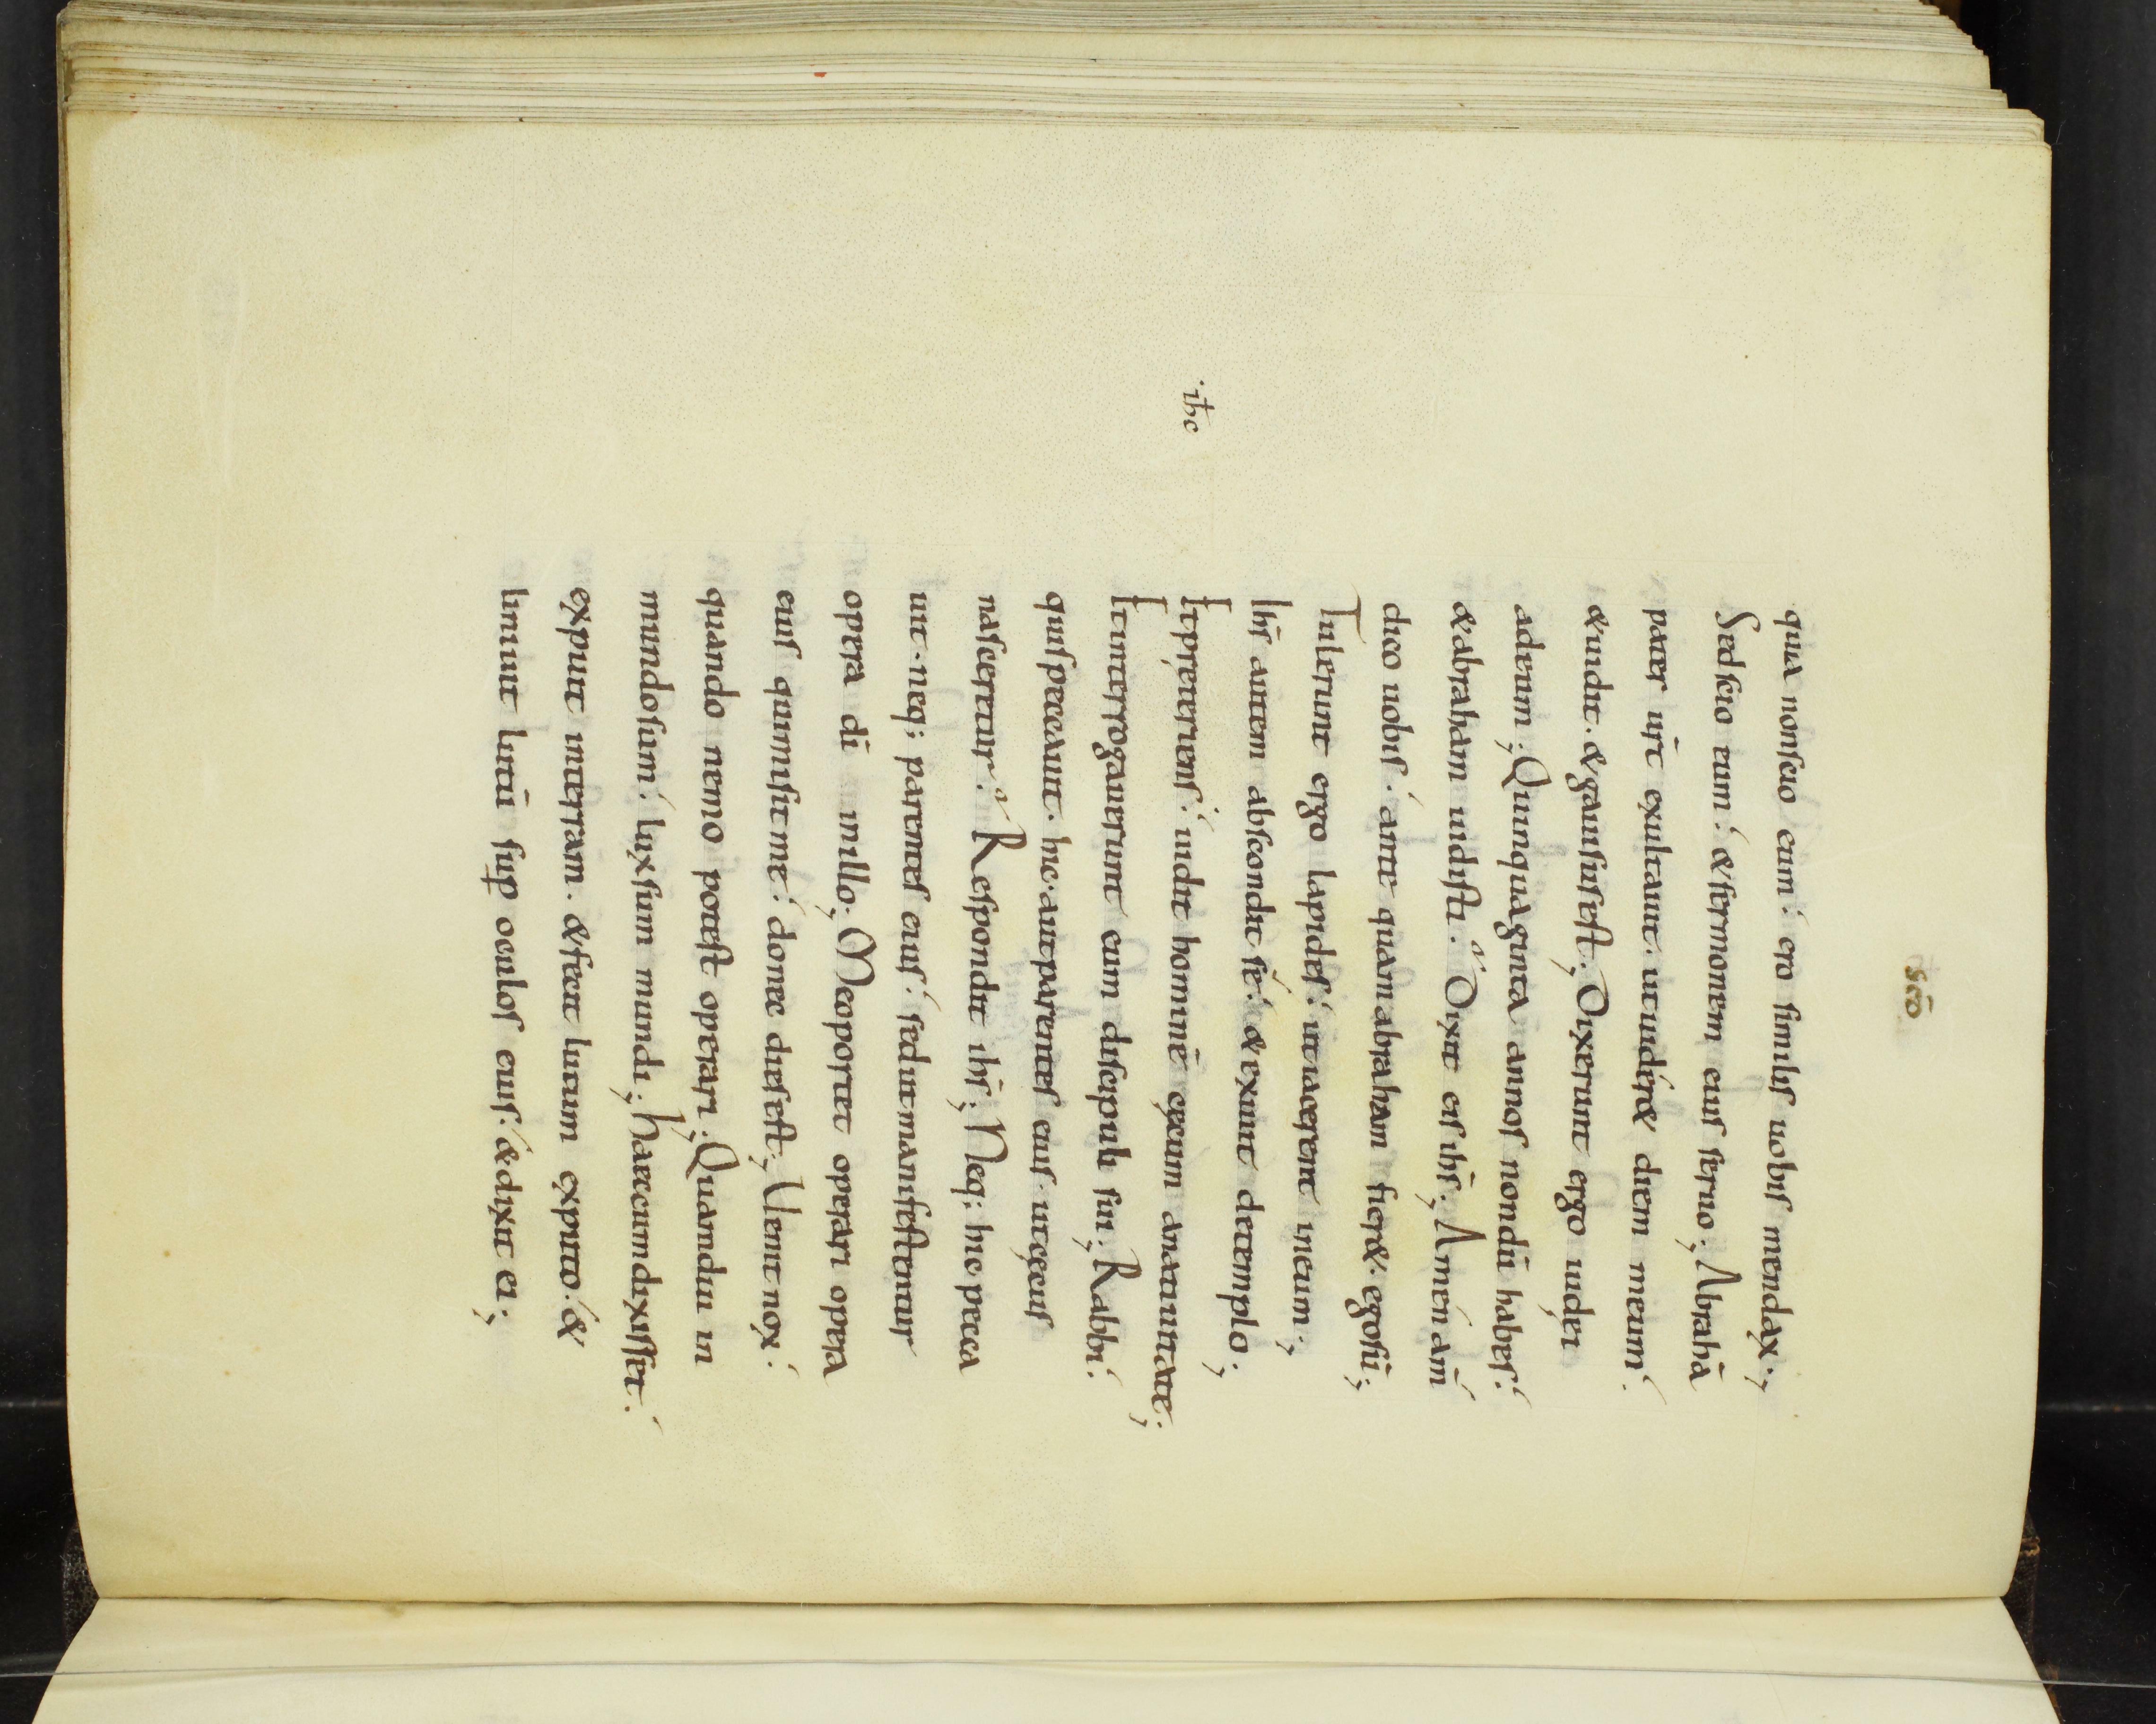 scō
quia nonscio eum: ero similis uobis mendax;
Sedscio eum: & sermonem eius seruo; Abrahā
pater ur̄t exultauit. utuider& diem meum.
& uidit. & gauisusest; Dixerunt ergo iudęi
adeum; Quinquaginta annos nondū habes:
& abraham uidisti? Dixit eis ihs̄; Amén am̄
dico uobis. ante quam abraham fier&. egosū;
Tulerunt ergo lapides: utiacerent ineum;
Ihs̄ autem abscondit sé: & exiuit detemplo;
ihc
Etpręteriens: uidit hominē cęcum anatiuitate;
Etinterrogauerunt eum discipuli sui; Rabbi.
quispeccauit. hic. autparentes eius. utcęcus
nasceretur? Respondit ihs̄; Neq; hic pecca
uit. neq; parentes eius: sedutmanifestentur
opera dī inillo; Meoportet operari opera
eius quimisitme: donec diesest; Uenit nox:
quando nemo potest operari; Quamdiu in
mundosum: luxsum mundi; Haeccumdixisset:
expuit interram. & fecit lutum exputo: &
liniuit lutū sup̱ oculos eius: & dixit ei;